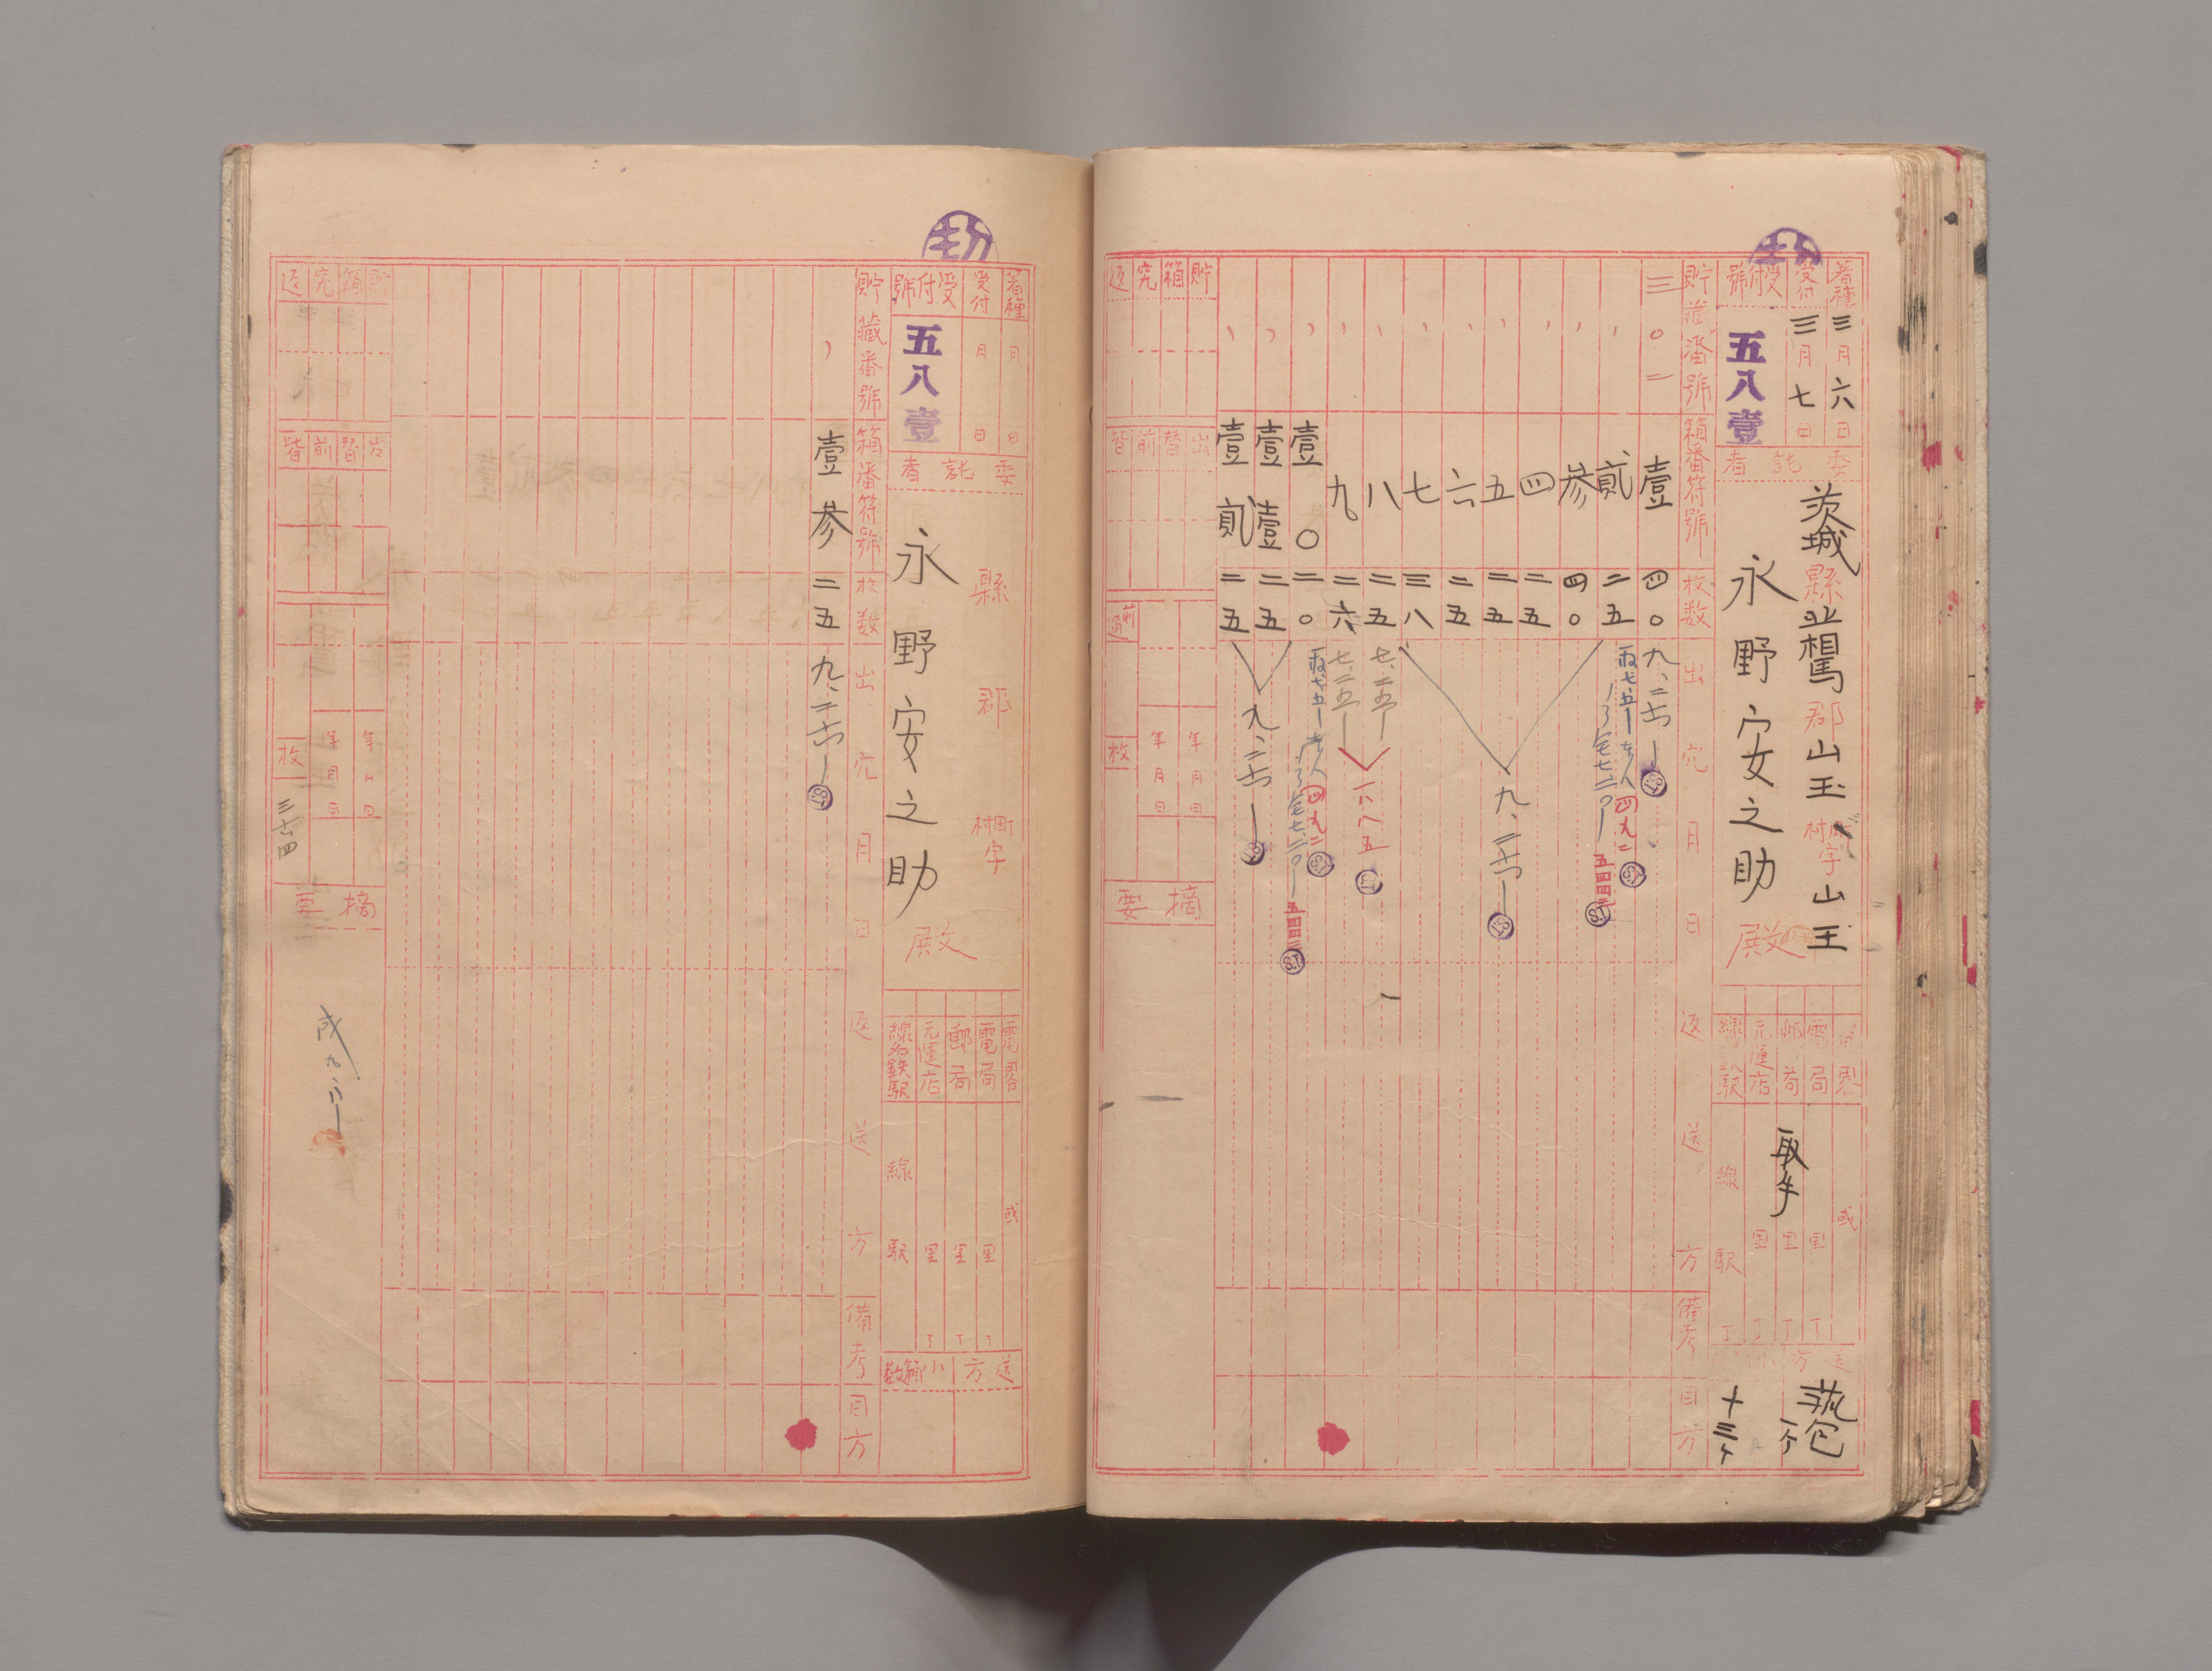 着種 三月六日
受付 三月七日
受付號 五八壹
委託者
茨城縣北相馬郡山王村字山王
永野安之助殿
電局 里 丁
郵局 里 丁
元運店 里 丁
取手
線 駅
送方
十三ケ
貯蔵番號 箱番符號 枚数 出穴月日 返送方 備考 目方
三〇二 壹 四〇 九、二六
〃 貳 二五
〃 参 四〇
〃 四 二五
〃 五 二五
〃 六 二五
〃 七 三八
九、二六
〃 八 二五 七、二五
〃 九 二六 七、二五
六八五
〃 壹〇 二〇
〃 壹壹 二五
〃 壹貳 二五
九、二六
貯箱究返
出替前皆
前過
年月日
年月日
枚
摘要
着種 月 日
受付 月 日
受付號 五八壹
委託者
縣 郡 町村字
永野安之助殿
電略 或
電局 里 丁
郵局 里 丁
元運店 里 丁
線名鉄駅 線 駅
送方 小箱数
貯蔵番號 箱番符號 枚数 出穴月日 返送方 備考 目方
〃 壹参 二五 九、二六
貯箱究返
出替前皆
年月日
年月日
枚 三六四
摘要